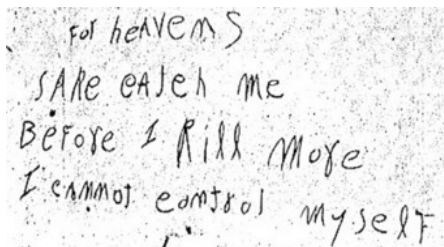 For heAVens
SAKe cAtch me
BeFore I Kill More
I cannot control myself